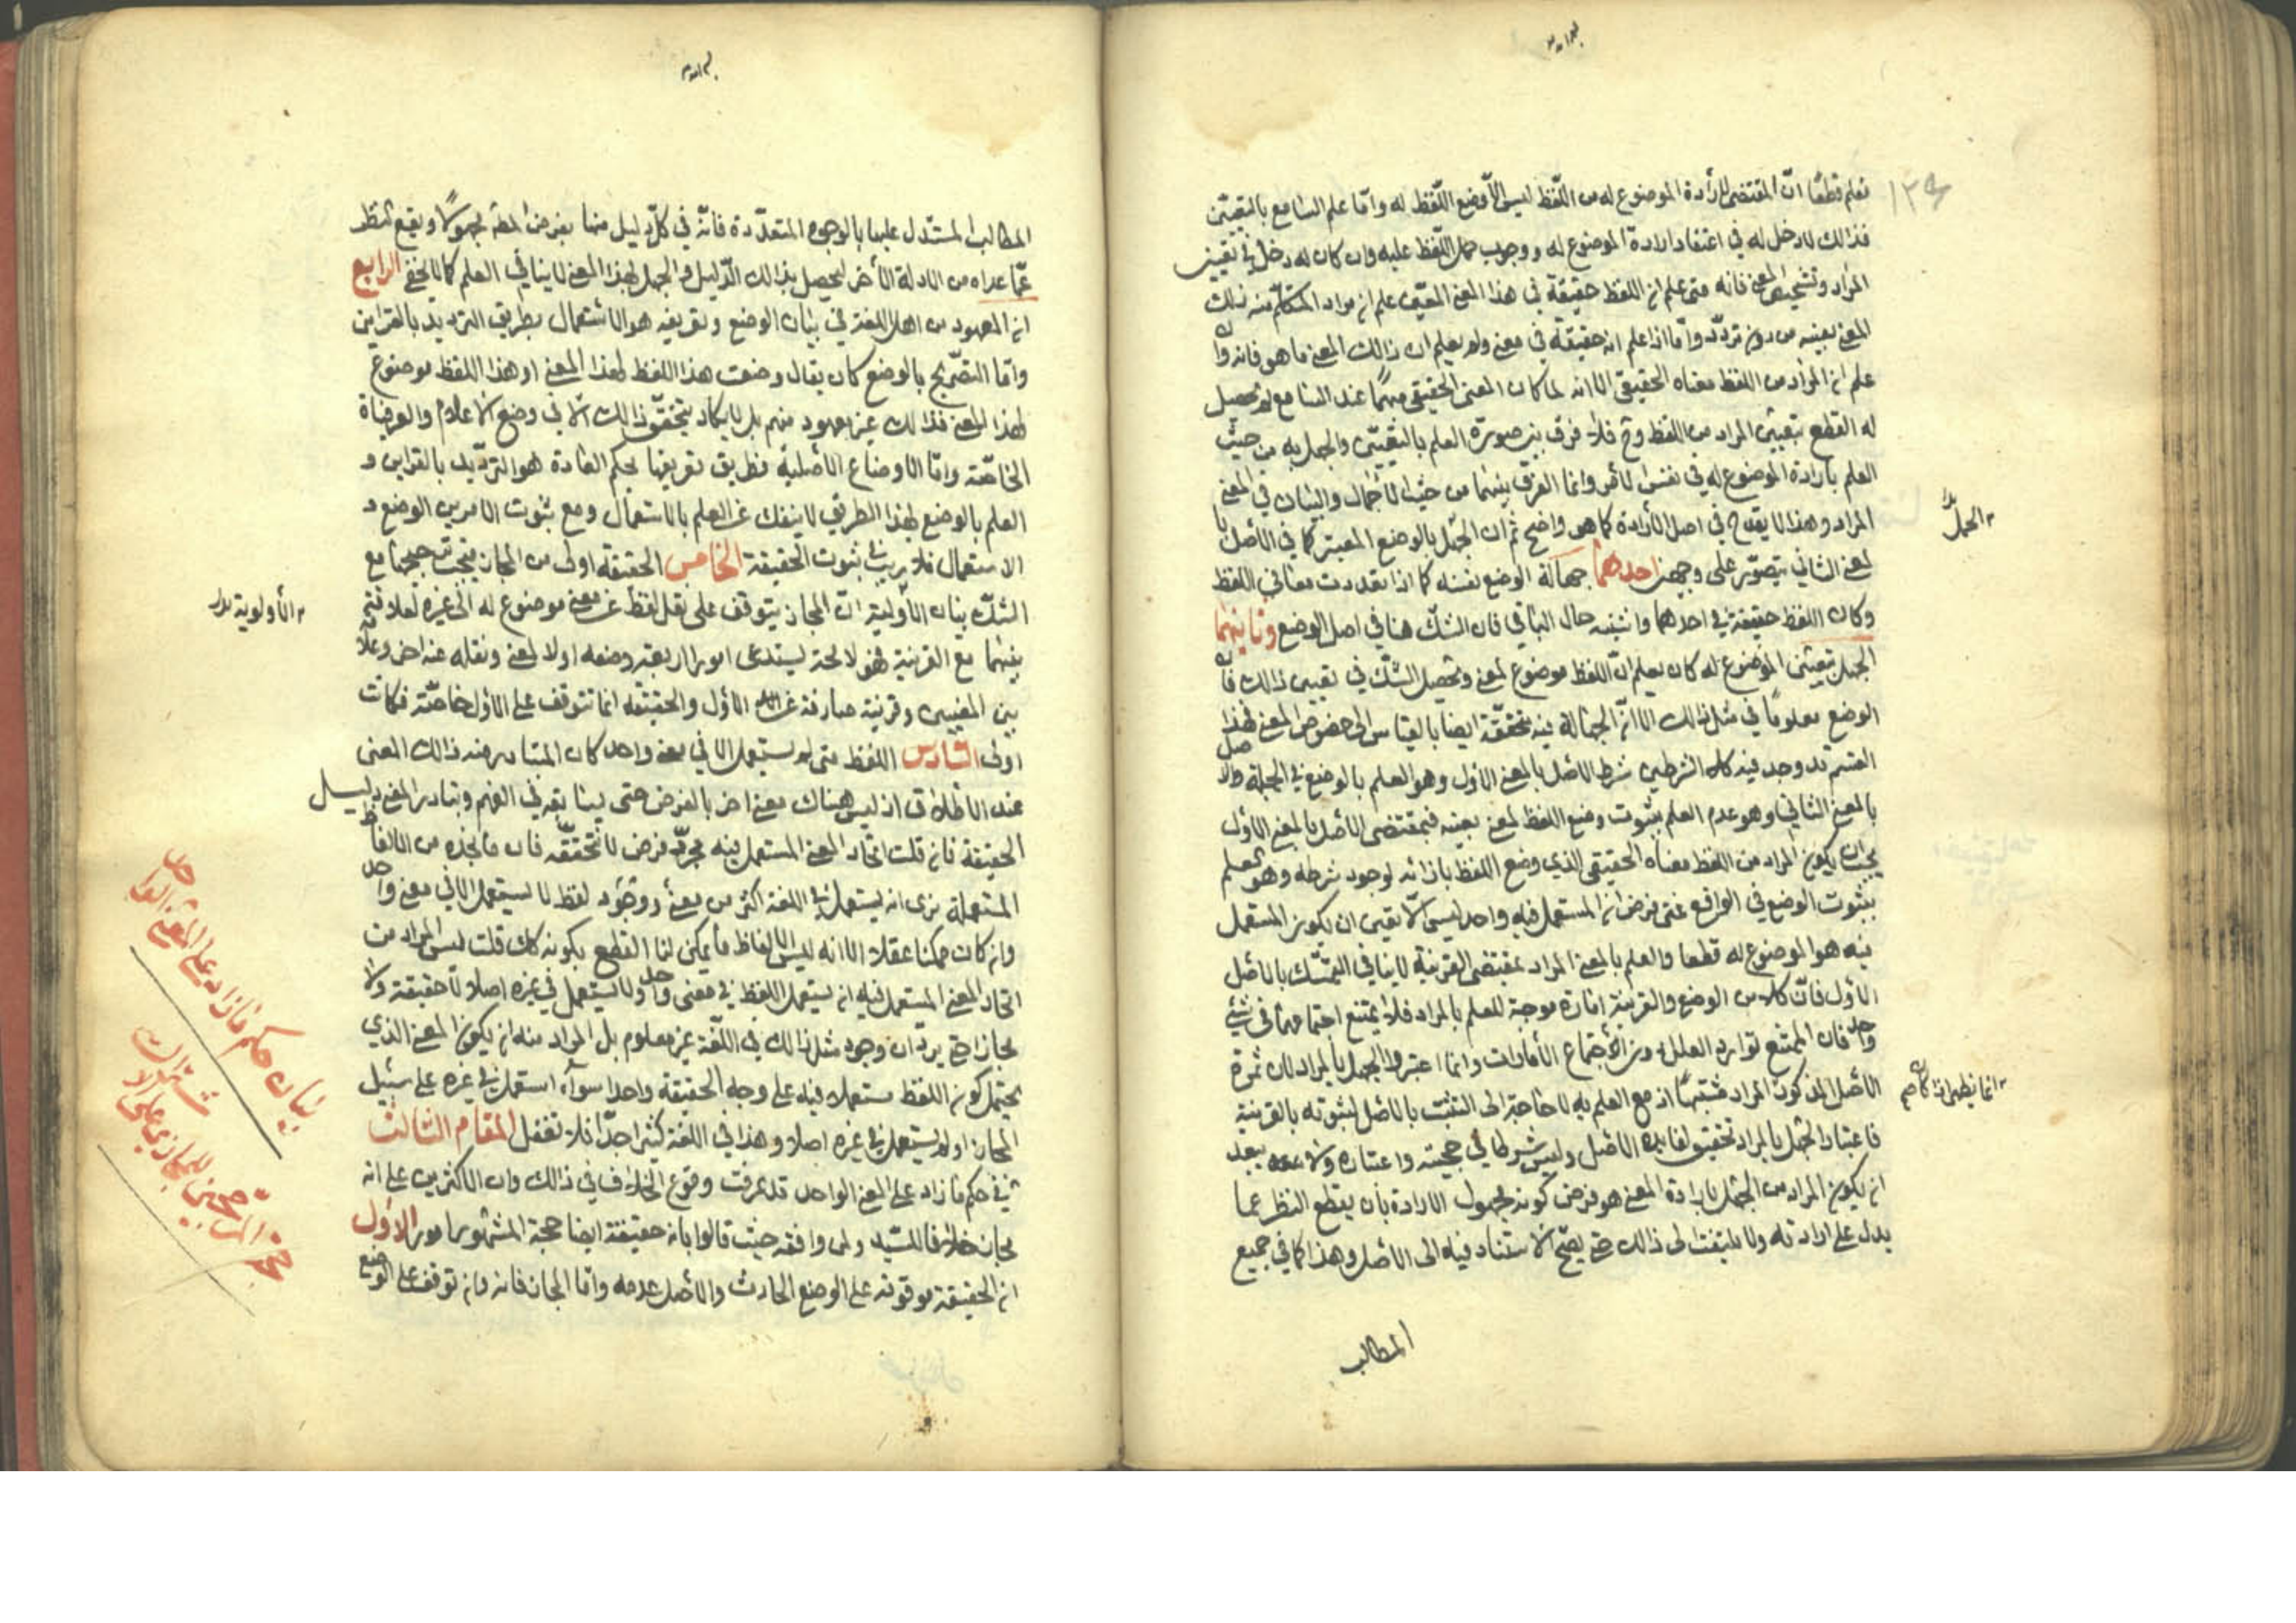 نعلم قطعًا انّ المقتضى لارادة الموضوع له من اللّفظ ليس الّا وضع اللّفظ له وامّا علم السامع بالتعيّن
فذالك لا دخل له في اعتقاد ارادة الموضوع له ووجوب حمل اللّفظ عليه وان كان له دخل في تعيين
المراد وتشخيص المعنى فانه متى علم ان اللفظ حقيقة في هذا المعنى المعيّن علم ان مراد المتكلّم منه ذلك
المعنى بعينه من دون تردّد وامّا اذا علم انه حقيقة في معنى ولم يعلم ان ذالك المعنى ما هو فانه وان
علم ان المراد من اللفظ معناه الحقيقي الا انه لما كان المعنى الحقيقي مبهمًا عند السامع لم يحصل
له القطع بتعيين المراد من اللفظ وح فلا فرق بين صورة العلم بالتعيّن والجهل به من حيث
العلم بارادة الموضوع له في نفس الامر وانما الفرق بينهما من حيث الاجمال والبيان في المعنى
المراد وهذا لا يقدح في اصل الارادة كما هو واضح ثم ان الجهل بالوضع المعتبر كما في الاصل با
لمعنى الثاني يتصوّر على وجهين احدهما جهالة الوضع نفسه كما اذا تعددت معاني اللفظ
وكان اللفظ حقيقة في احدهما واشتبه حال الباقي فان الشك هنا في اصل الوضع وثانيهما
الجهل بتعيين الموضوع له كان يعلم انّ اللفظ موضوع لمعنى وتحصل الشك في تعيين ذالك فان
الوضع معلومًا في مثل ذالك الا انّ الجهالة فيه متحققة ايضا بالقياس الى خصوص المعنى فهذا
القسم قد وجد فيه كلا الشرطين شرط الاصل بالمعنى الاول وهو العلم بالوضع في الجملة والاصل
بالمعنى الثاني وهو عدم العلم بثبوت وضع اللفظ لمعنى بعينه فبمقتضى الاصل بالمعنى الاول
يجب ان يكون المراد من اللفظ معناه الحقيقي الذي وضع اللفظ بازائه لوجود شرطه وهو العلم
بثبوت الوضع في الواقع فمتى فرض ان المستعمل فيه واحد ليس الّا تعين ان يكون المستعمل
فيه هو الموضوع له قطعا والعلم بالمعنى المراد بمقتضى القرينة لا ينافي التمسّك بالاصل
الاول فانّ كلا من الوضع والقرينة امارة موجبة للعلم بالمراد فلا يمتنع اجتماعهما في شيء
واحد فان الممتنع توارد العلل دون اجتماع الامارات وانما اعتبروا الجهل بالمراد لان ثمرة
الاصل المذكور المراد مشتبهًا اذ مع العلم به لا حاجة الى التثبت بالاصل لثبوته بالقرينة
فاعتبار الجهل بالمراد تحقيق لفايدة الاصل وليس شرطا في حجيته واعتباره ولا يبعد
ان يكون المراد من الجهل بارادة المعنى هو فرض كونه مجهول الارادة بان يقطع النظر عما
يدل على ارادته ولا يلتفت الى ذالك حتى يصحّ الاستناد فيه الى الاصل وهذا كما في جميع
المطالب
الجهل
انما يظهر اذا كان
المطالب المستدل عليها بالوجوه المتعدّدة فانّه في كلّ دليل منها يفرض المط مجهولًا ويقع النظر
عمّا عداه من الادلة الأخر ليحصل بذالك الدّليل والجهل بهذا المعنى لا ينافي العلم كما لا يخفى الرابع
ان المعهود من اهل اللغة في بيان الوضع وتعريفه هو الاستعمال بطريق الترديد بالقراين
وامّا التصريح بالوضع كان يقال وضعت هذا اللفظ لهذا المعنى او هذا اللفظ موضوع
لهذا المعنى فذالك غير معهود منهم بل لا يكاد يتحقّق ذالك الّا في وضع الاعلام والعرفيات
الخاصّة وامّا الاوضاع الاصلية فطريق تعريفها بحكم العادة هو الترديد بالقراين و
العلم بالوضع بهذا الطريق لا ينفك عن العلم بالاستعمال ومع ثبوت الامرين الوضع و
الاستعمال فلا ريب في ثبوت الحقيقة الخامس الحقيقة اولى من المجاز فيجب ترجيحها مع
الشكّ بيان الأولية انّ المجاز يتوقف على نقل لفظ عن معنى موضوع له الى غيره لعلاقة
بينهما مع القرينة فهو لا محة يستدعى امورا اربعة وضعه اولا لمعنى ونقله عنه اخر وعلاقة
بين المعنيين وقرينة صارفة عن الاول والحقيقة انما تتوقف على الاول خاصّة فكانت
اولى السّادس اللفظ متى لم يستعمل الا في معنى واحد كان المتبادر منه ذالك المعنى
عند الاطلاق اذ ليس هناك معنى اخر بالفرض حتى يسابقه في الفهم وتبادر المعنى دليل
الحقيقة فان قلت اتحاد المعنى المستعمل فيه مجرّد فرض لا تحقّقه فان ما نجده من الالفاظ
المستعملة نرى انه يستعمل في اللغة اكثر من معنى ووجود لفظ لا يستعمل الا في معنى واحد
وان كان ممكنا عقلا الا انه ليس في الالفاظ ما يمكن لنا القطع بكونه كك قلت ليس المراد من
اتحاد المعنى المستعمل فيه ان يستعمل اللفظ في معنى واحد ولا يستعمل في غيره اصلا لا حقيقة ولا
مجازا حتى يردّ ان وجود مثل ذالك في اللّغة غير معلوم بل المراد منه ان يكون المعنى الذي
يحتمل كون اللفظ مستعملا فيه على وجه الحقيقة واحدا سوآء استعمل في غيره على سبيل
المجاز او لم يستعمل في غيره اصلا وهذا في اللغة كثير اجدّا فلا تغفل المقام الثالث
في حكم ما زاد على المعنى الواحد قد عرفت وقوع الخلاف في ذالك وان الاكثرين على انه
مجاز خلافا للسّيد ومن وافقه حيث قالوا بانه حقيقة ايضا حجة المشهور امور الاول
ان الحقيقة موقوفة على الوضع الحادث والاصل عدمه وامّا المجاز فانه وان توقف على الوضع
الأولوية
بيان حكم ما زاد على المعنى الواحد
حجة المرجحين للمجاز على الاشتراك